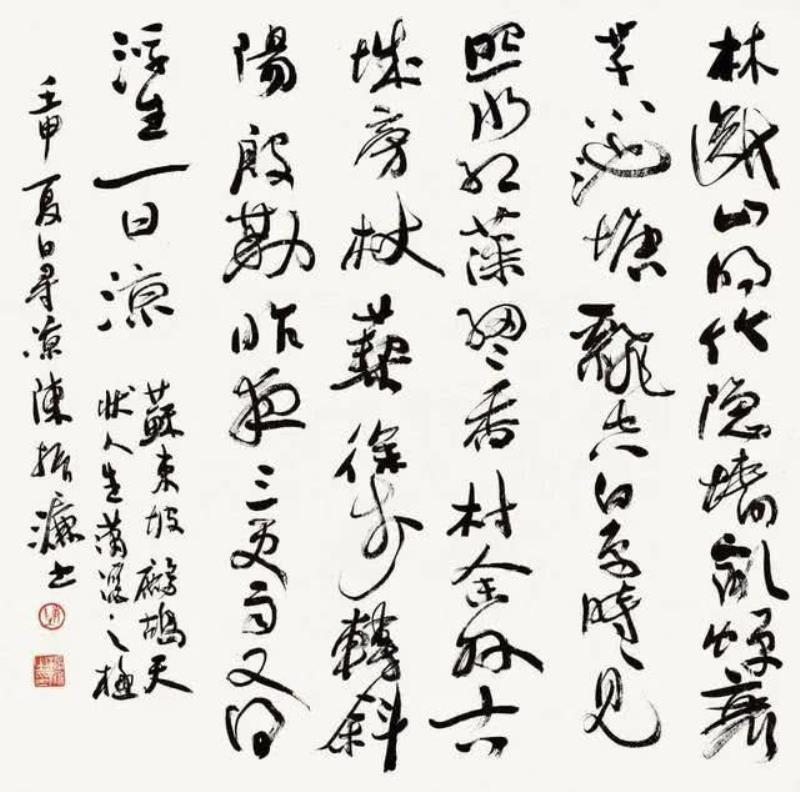 林斷山明竹隐墻亂蟬衰
草小池塘飜空白鳥時〻見
照水紅蕖細〻香村舍外古
城旁杖藜徐步轉斜
陽殷勤昨夜三更雨又得
浮生一日涼
蘇東坡鷓鴣天
狀人生之極
壬申夏日尋涼陳振濂書